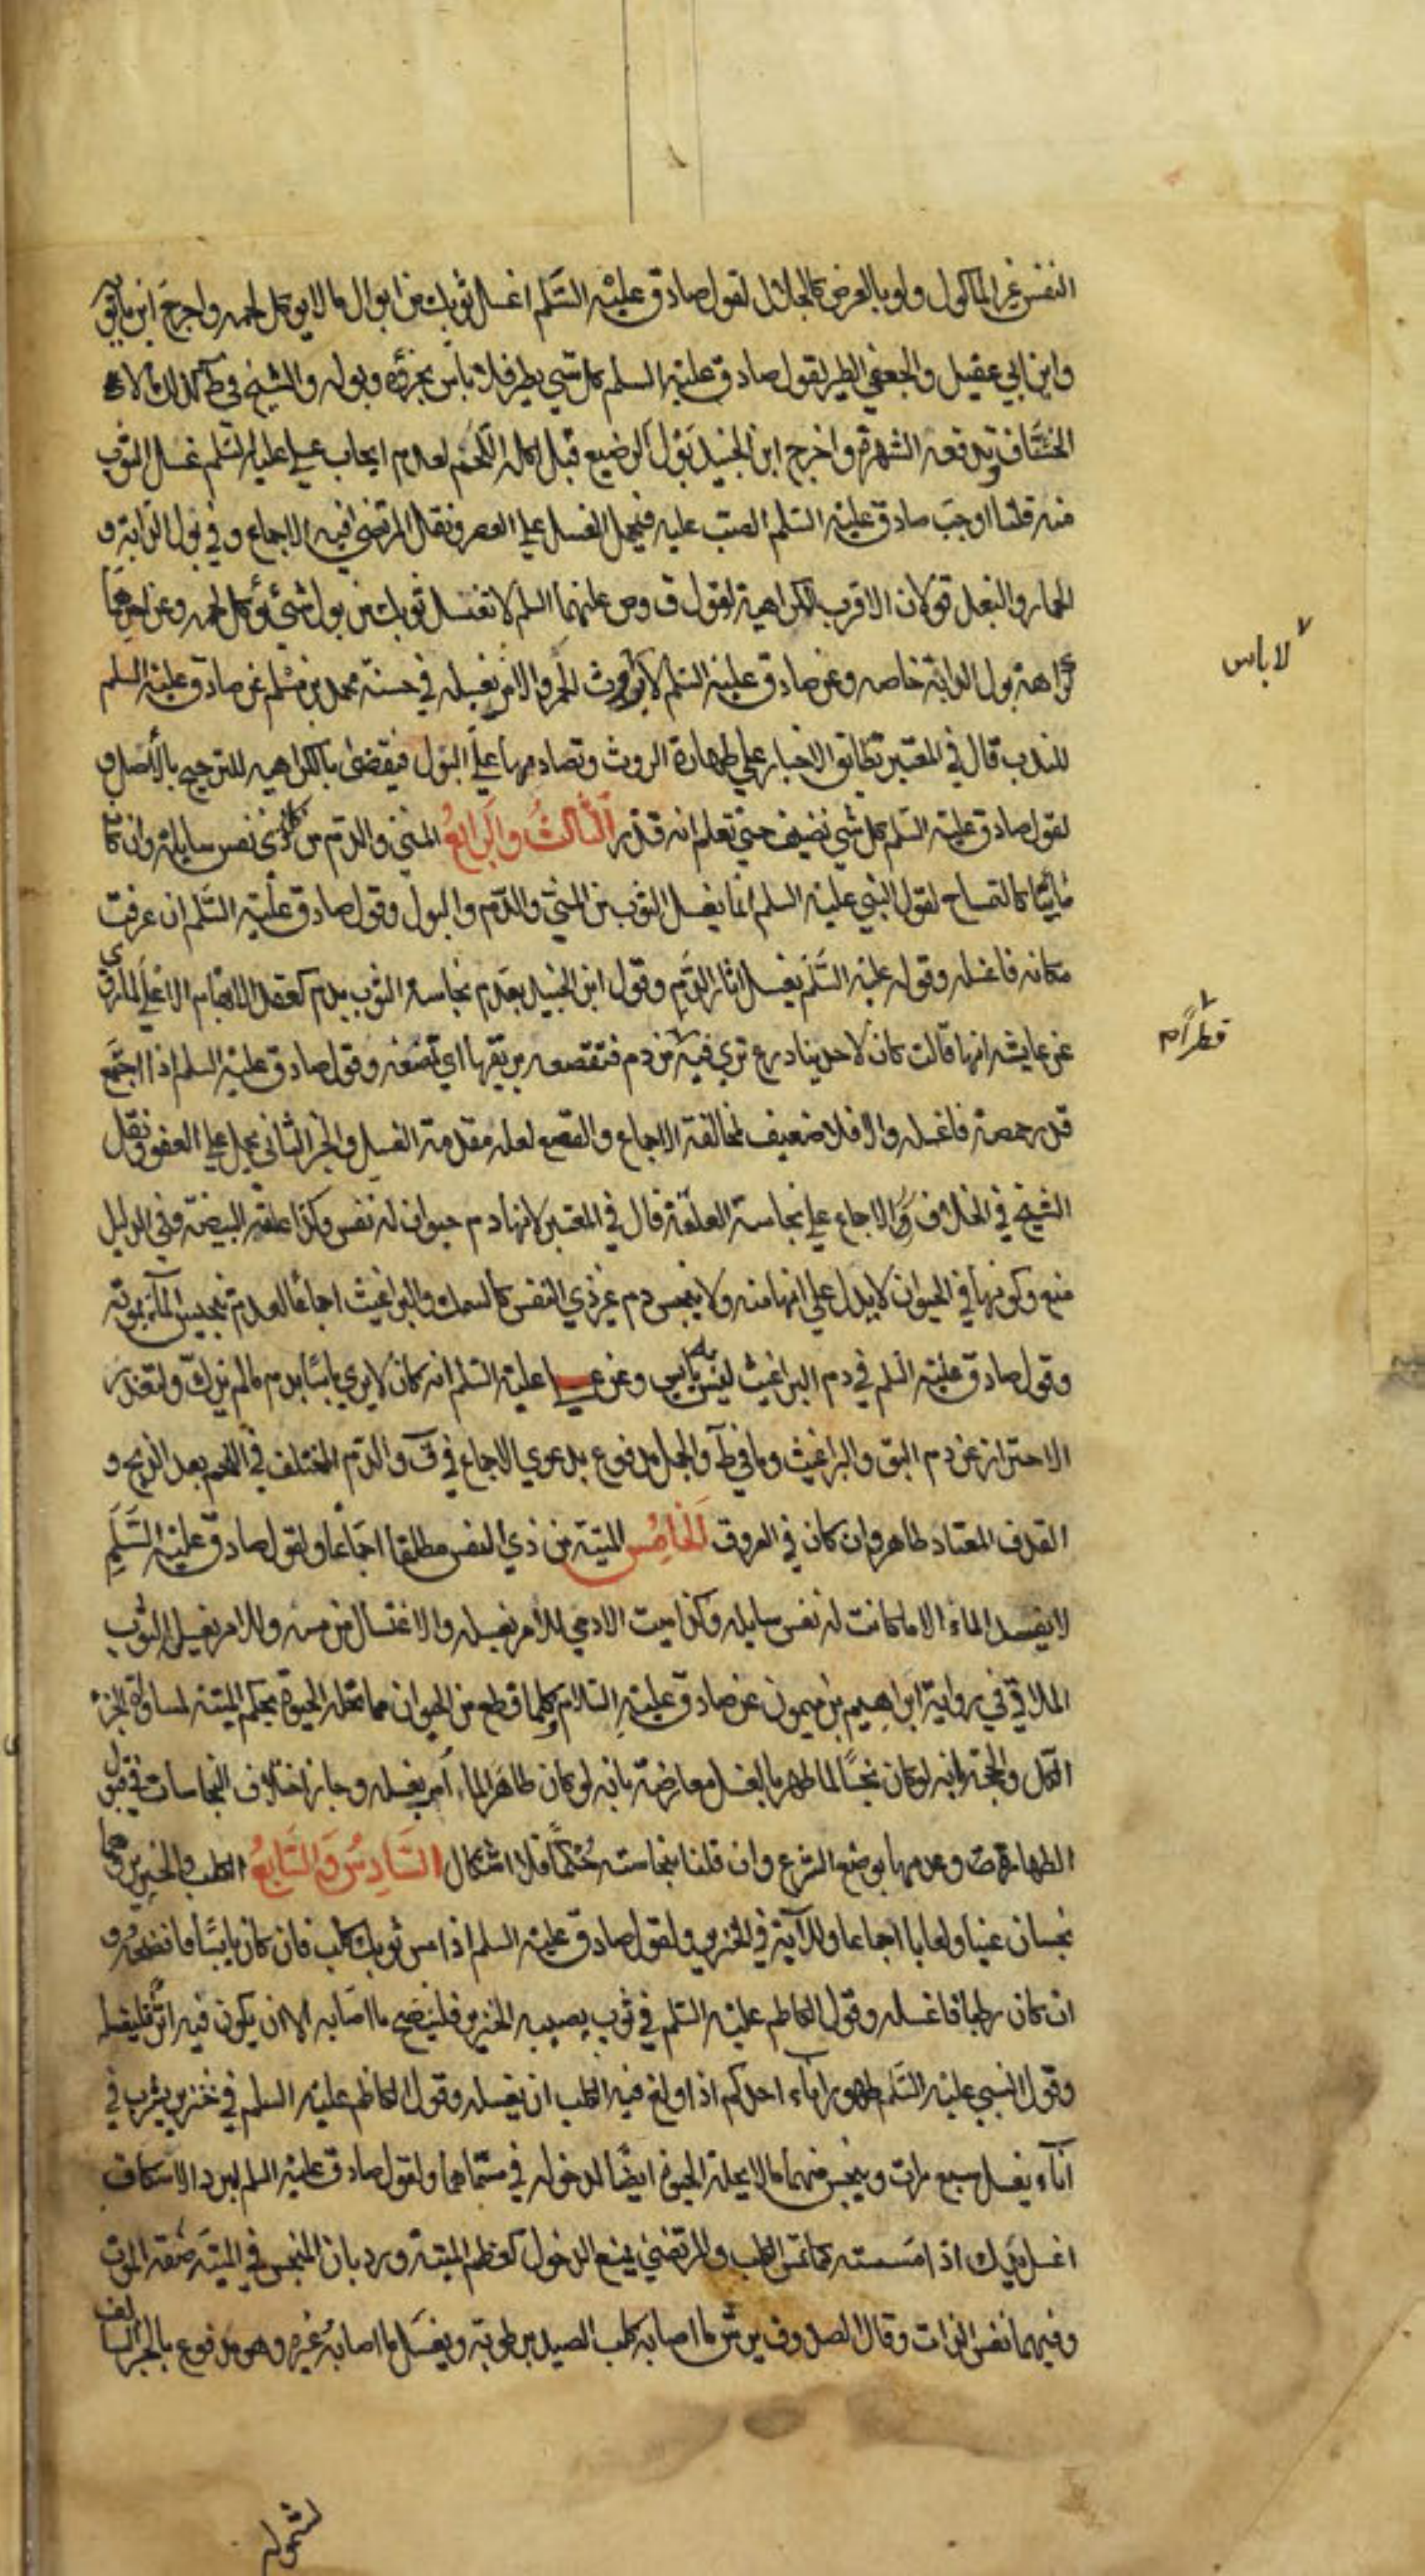 النفس غير المأكول ولو بالعرض كالجلال لقول صادق عليه السلم اغسل ثوبك من ابوال ما لا يوكل لحمه واخرج ابن بابويه
وابن ابي عقيل والجعفي الطير لقول صادق عليه السلم كل شي يطير فلا باس بخرئه وبوله والشيخ في ط كذلك الا
الخشاف ويدفعه الشهرة واخرج ابن الجنيد بول الرضيع قبل اكله اللحم لعدم ايجاب علي عليه السلم غسل الثوب
منه قلنا اوجب صادق عليه السلم الصب عليه فيحمل الغسل علي العصر ونقل المرتضي فيه الاجماع وفي بول الدابة و
الحمار والبغل قولان الاقرب الكراهية لقول ق وص عليهما السلم لا تغسل ثوبك من بول شيئ يؤكل لحمه وعن احدهما
كراهة بول الدابة خاصه وعن صادق عليه السلم لا بروث الحمر والامر بغسله في حسنة محمد بن مسلم عن صادق عليه السلم
للندب قال في المعتبر تطابق الاخبار علي طهارة الروث وتصادمها علي البول فيقضى بالكراهيه للترجيح بالأصل و
لقول صادق عليه السلم كل شي نضيف حتي تعلم انه قذر الثالث والرابع المني والدم من كل ذي نفس سايلة وان كان
مائيا كالتمساح لقول النبي عليه السلم انما يغسل الثوب من المني والدم والبول وقول صادق عليه السلم ان عرفت
مكانه فاغسله وقوله عليه السلم يغسل اثار الدم وقول ابن الجنيد بعدم نجاسة الثوب بدم كعقد الابهام الاعلي لما روي
عن عايشه انها قالت كان لاحدينا درع تري فيه من دم فتقصعه بريقها اي تمضغه وقول صادق عليه السلم اذا اجتمع
قدر حمصة فاغسله والا فلا ضعيف لمخالفة الاجماع والقصع لعله مقدمة الغسل والخبر الثاني يحمل علي العفو ونقل
الشيخ في الخلاف الاجماع علي نجاسة العلقة قال في المعتبر لانها دم حيوان له نفس وكذا علقة البيضة وفي الدليل
منع وكونها في الحيوان لا يدل علي انها منه ولا ينجس دم غير ذي النفس كالسمك والبراغيث اجماعا لعدم تنجيس الماء بموته
وقول صادق عليه السلم في دم البراغيث ليس به باس وعن علي عليه السلم انه كان لا يري باسا بدم ما لم يذك ولتعذر
الاحتراز عن دم البق والبراغيث وما في ط والجمل مدفوع بدعوي الاجماع في ف والدم المتخلف في اللحم بعد الذبح و
القذف المعتاد طاهر وان كان في العروق الخامس الميتة من ذي النفس مطلقا اجماعا ولقول صادق عليه السلم
لا يفسد الماء الا ما كانت له نفس سايله وكذا ميت الادمي للامر بغسله والاغتسال من مسه وللامر بغسل الثوب
الملاقي في رواية ابراهيم بن ميمون عن صادق عليه السلام وكلما قطع من الحيوان مما تحله الحيوة بحكم الميتة لمساواة الجزء
الكل والحجة بانه لو كان نجسًا لما طهر بالغسل معارضة بانه لو كان طاهرا لما امر بغسله وجاز اختلاف النجاسات في قبول
الطهارة وعدمها بوضع الشرع وان قلنا بنجاسته حكمًا فلا اشكال السادس والسابع الكلب والخنزير وهما
نجسان عينا ولعابا اجماعا وللآية في الخنزير ولقول صادق عليه السلم اذا مس ثوبك كلب فان كان يابسًا فانضحه و
ان كان رطبا فاغسله وقول الكاظم عليه السلم في ثوب يصيبه الخنزير فلينضح ما اصابه الا ان يكون فيه اثر فليغسله
وقول النبي عليه السلم طهور اناء احدكم اذا ولغ فيه الكلب ان يغسله وقول الكاظم عليه السلم في خنزير يشرب في
اناء يغسل سبع مرات وينجس منهما ما لا يحله الحيوة ايضًا لدخوله في مسماهما ولقول صادق عليه السلم لبرد الاسكاف
اغسل يدك اذا مسسته كما تمس الكلب والمرتضي يمنع الدخول كعظم الميتة ورد بان المنجس في الميتة صفة الموت
وفيهما نفس الذات وقال الصدوق يرش ما اصابه كلب الصيد برطوبة ويغسل ما اصابه غيره وهو مدفوع بالخبر السالف
لا باس
قطرا م
لشموله